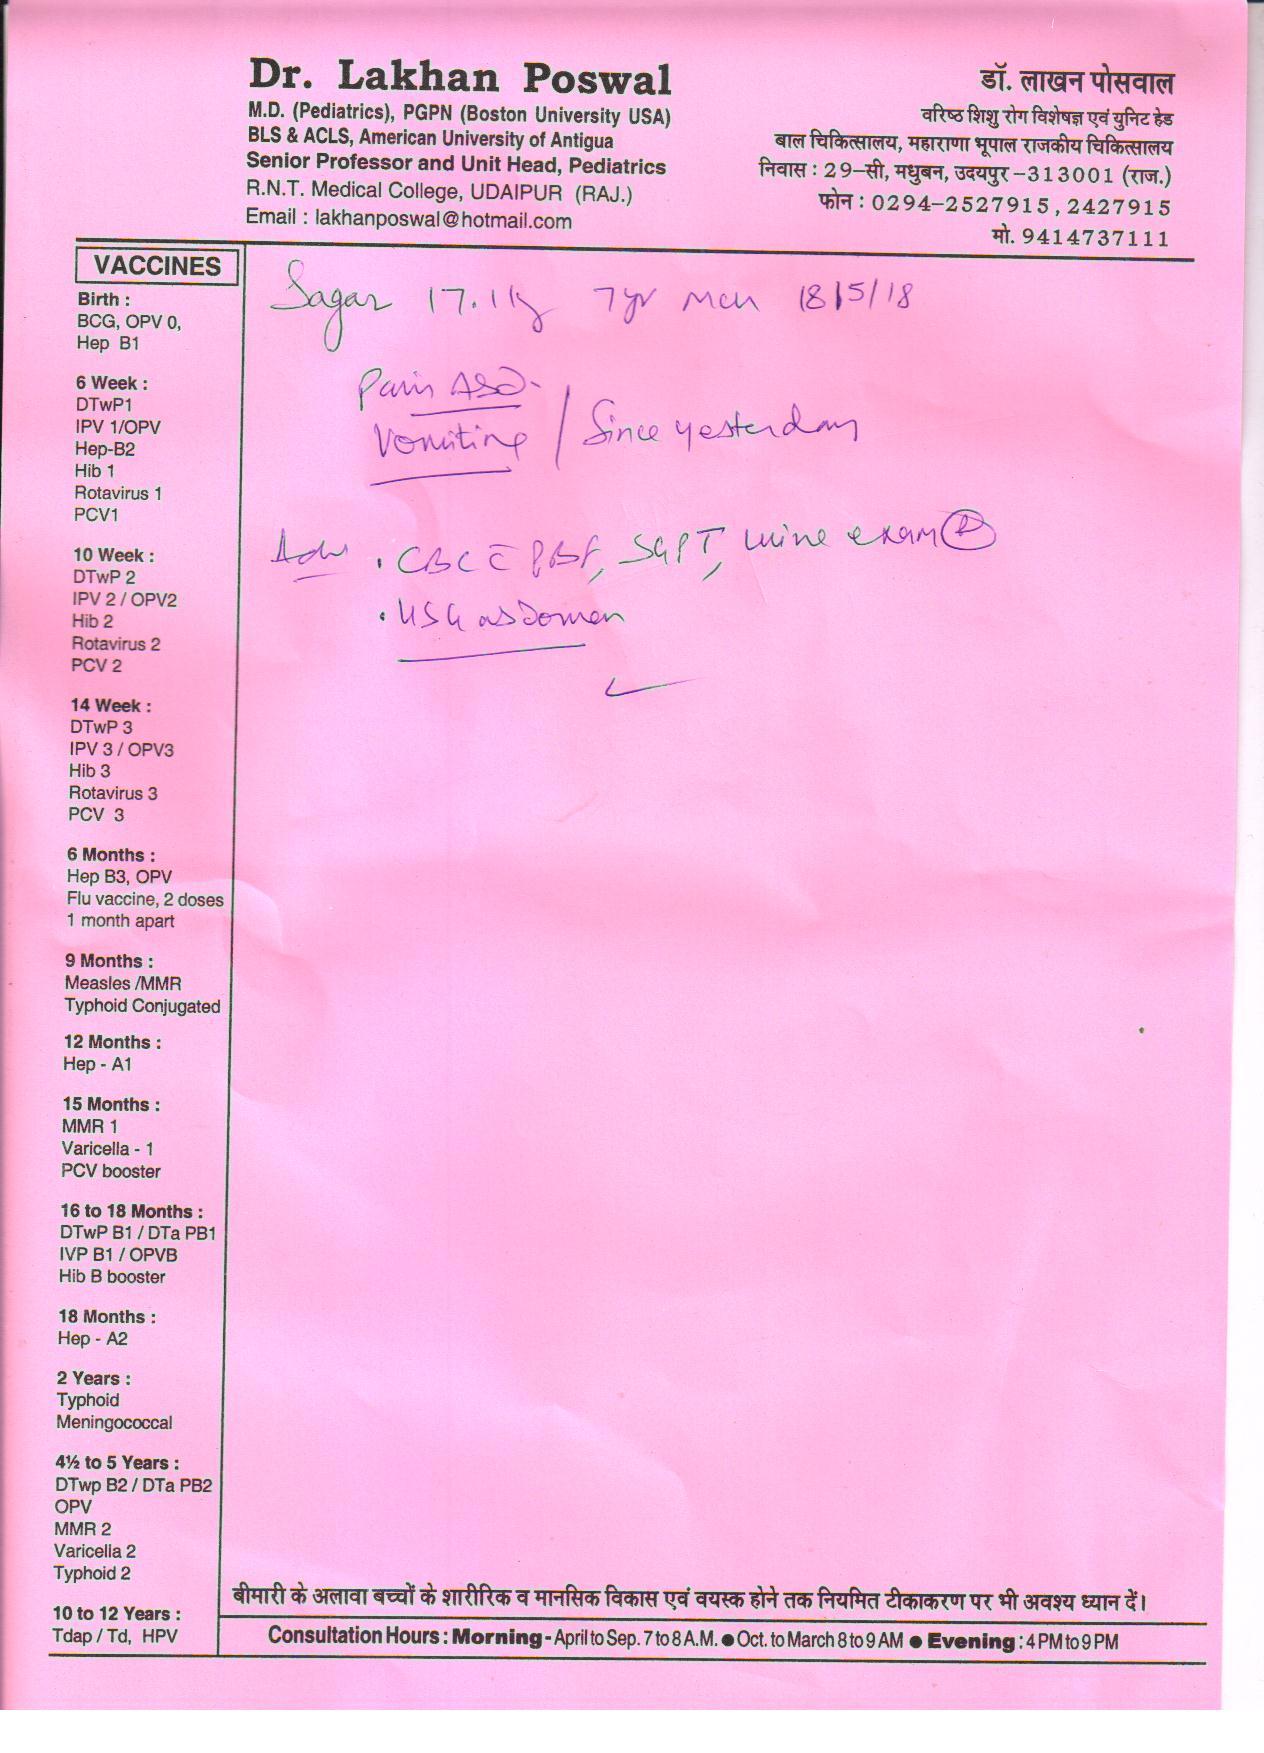 Dr. Lakhan Poswal
M.D. (Pediatrics), PGPN (Boston University USA)
BLS & ACLS, American University of Antigua
Senior Professor and Unit Head, Pediatrics
R.N.T. Medical College, UDAIPUR (RAJ.)
Email : lakhanposwal@hotmail.com
डॉ. लाखन पोसवाल
वरिष्ठ शिशु रोग विशेषज्ञ एवं युनिट हेड
बाल चिकित्सालय, महाराणा भूपाल राजकीय चिकित्सालय
निवास : 29-सी, मधुबन, उदयपुर-313001 (राज.)
फोन : 0294-2527915, 2427915
मो. 9414737111
VACCINES
Birth :
BCG, OPV 0,
Hep B1
6 Week :
DTwP1
IPV 1/OPV
Hep-B2
Hib 1
Rotavirus 1
PCV1
10 Week :
DTwP 2
IPV 2 / OPV2
Hib 2
Rotavirus 2
PCV 2
14 Week :
DTwP 3
IPV 3 / OPV3
Hib 3
Rotavirus 3
PCV 3
6 Months :
Hep B3, OPV
Flu vaccine, 2 doses
1 month apart
9 Months :
Measles /MMR
Typhoid Conjugated
12 Months :
Hep - A1
15 Months :
MMR 1
Varicella - 1
PCV booster
16 to 18 Months :
DTwP B1 / DTa PB1
IVP B1 / OPVB
Hib B booster
18 Months :
Hep - A2
2 Years :
Typhoid
Meningococcal
4½ to 5 Years :
DTwp B2 / DTa PB2
OPV
MMR 2
Varicella 2
Typhoid 2
10 to 12 Years :
Tdap / Td, HPV
Sagar 17.1 kg 7yr 18/5/18
Pain
Vomiting / Since yesterday
Adv . CBC c̄ PBF, SGPT, urine exam (R)
. USG abdomen
बीमारी के अलावा बच्चों के शारीरिक व मानसिक विकास एवं वयस्क होने तक नियमित टीकाकरण पर भी अवश्य ध्यान दें।
Consultation Hours : Morning - April to Sep. 7 to 8 A.M. ● Oct. to March 8 to 9 AM ● Evening : 4 PM to 9 PM